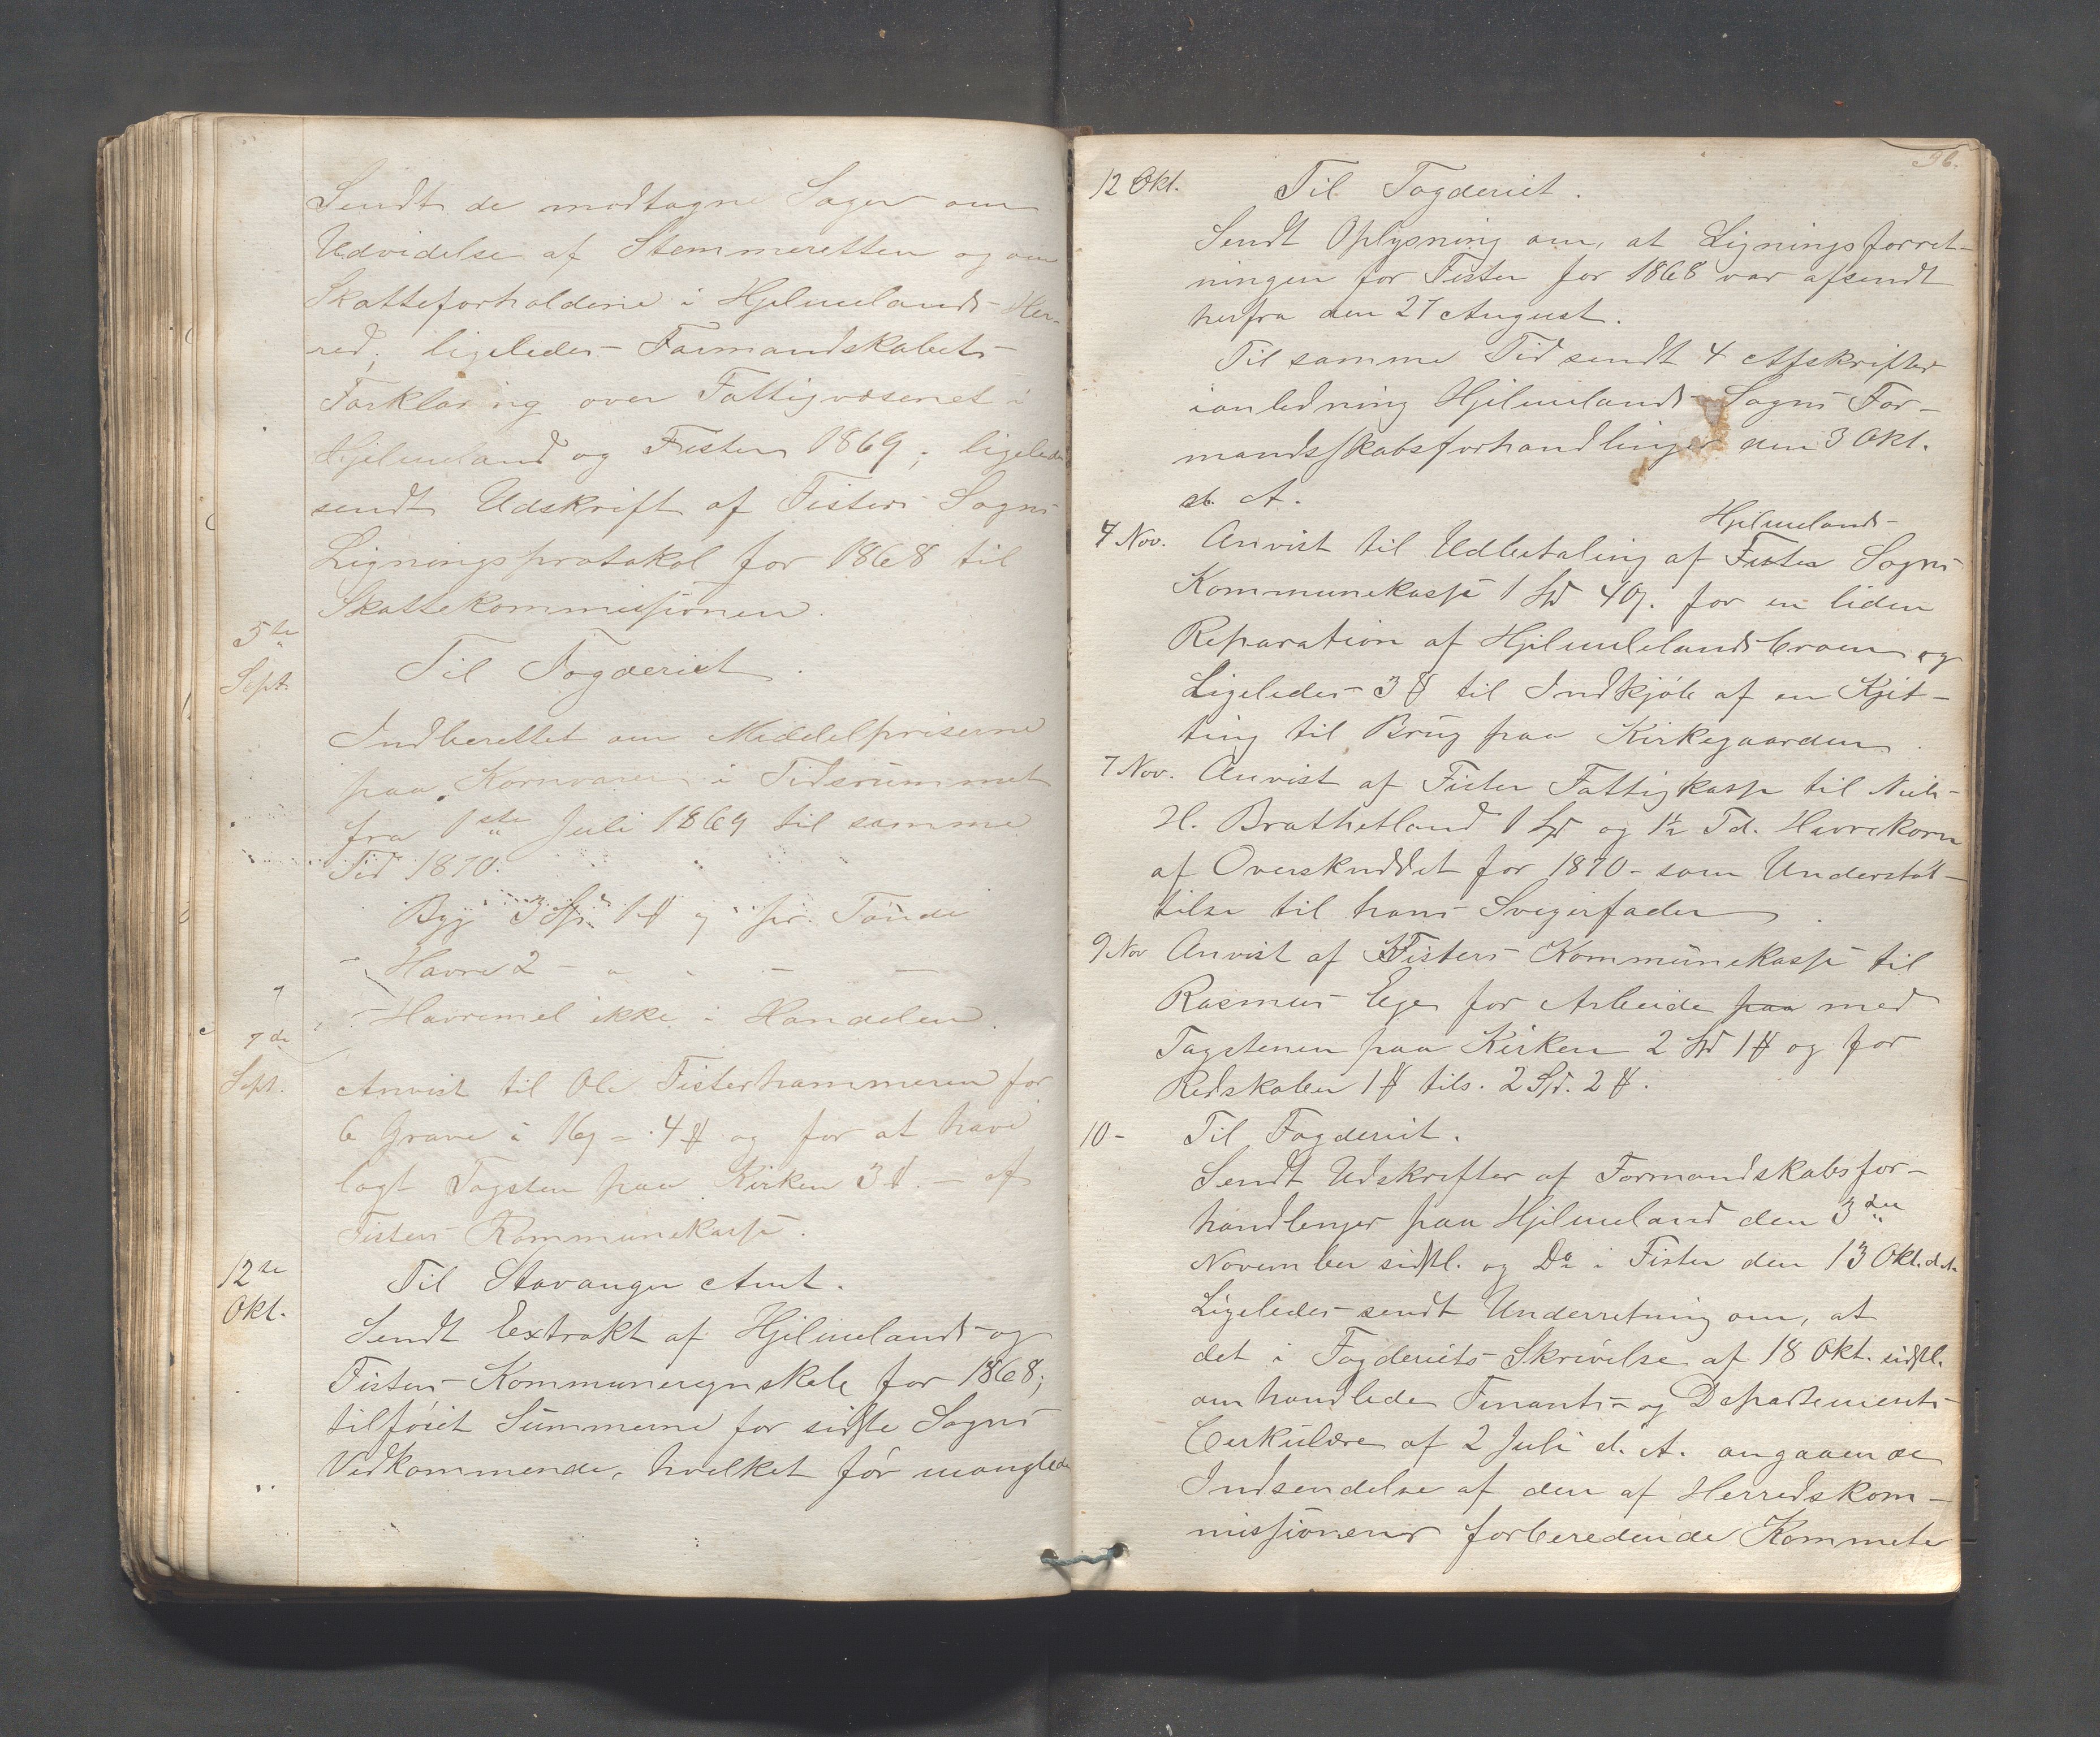 Sendt de modtagne Sager om
Udvidelse af Stemmeretten og om
Skatteforholdene i Hjelmelands Her-
red; ligeledes Formandskabets
Forklaring over Fattigvæsenet i
Hjelmeland og Fister 1869; ligeledes
sendt Udskrift af Fisters Sogns
Ligningsprotokol for 1868 til
Skattekommissionen.
5te
Sept.
Til Fogderiet.
Indberettet om Middelpriserne
paa Kornvarer i Tidsrummet
fra 1ste Juli 1869 til samme
Tid 1870.
Byg 3 Sp. pr. Tønde
Havre 2 - " - -
Havremel ikke i Handelen.
7de
Sept.
Anvist til Ole Fisterhammeren for
6 Grave à 16ẞ = 4 ℔ og for at have
lagt Tagsten paa Kirken 3 ℔. - af
Fisters Kommunekasse.
12te
Okt.
Til Stavanger Amt.
Sendt Extrakt af Hjelmelands og
Fisters Kommuneregnskab for 1868;
tilføiet Summerne for sidste Sogns
Vedkommende, hvilket før manglede
96.
12 Okt.
Til Fogderiet.
Sendt Oplysning om, at Ligningsforret-
ningen for Fister for 1868 var afsendt
herfra den 27 August.
Til samme Tid sendt 4 Afskrifter
ianledning Hjelmelands Sogns For-
mandsskabsforhandlinger den 3 Okt.
d. A.
Hjelmelands
4 Nov. Anvist til Udbetaling af Fister Sogns
Kommunekasse 1 Spd 40ẞ. for en liden
Reparation af Hjelmelands og
Ligeledes 3 ℔ til Indkjøb af en
til Brug paa Kirkegaarden.
7 Nov. Anvist af Fister Fattigkasse til Niels
H. Brathetland 1 Spd og 1½ Td. Havrekorn
af Overskuddet for 1870 som Understøt-
telse til hans Svigerfader.
9 Nov Anvist af Fisters Kommunekasse til
Rasmus Ege for Arbeide paa med
Tagstenen paa Kirken 2 Spd 1 ℔ og for
Redskaber 1 ℔ tils. 2 Spd. 2 ℔.
10 - Til Fogderiet.
Sendt Udskrifter af Formandskabsfor-
handlinger paa Hjelmeland den 3die
November sidstl. og Do i Fister den 13 Okt. d.A.
Ligeledes sendt Underretning om, at
det i Fogderiets Skrivelse af 18 Okt. sidstl.
omhandlede Finants- og Departements-
Cirkulære af 2 Juli d. A. angaaende
Indsendelse af den af Herredskom-
missionens forberedende Kommete